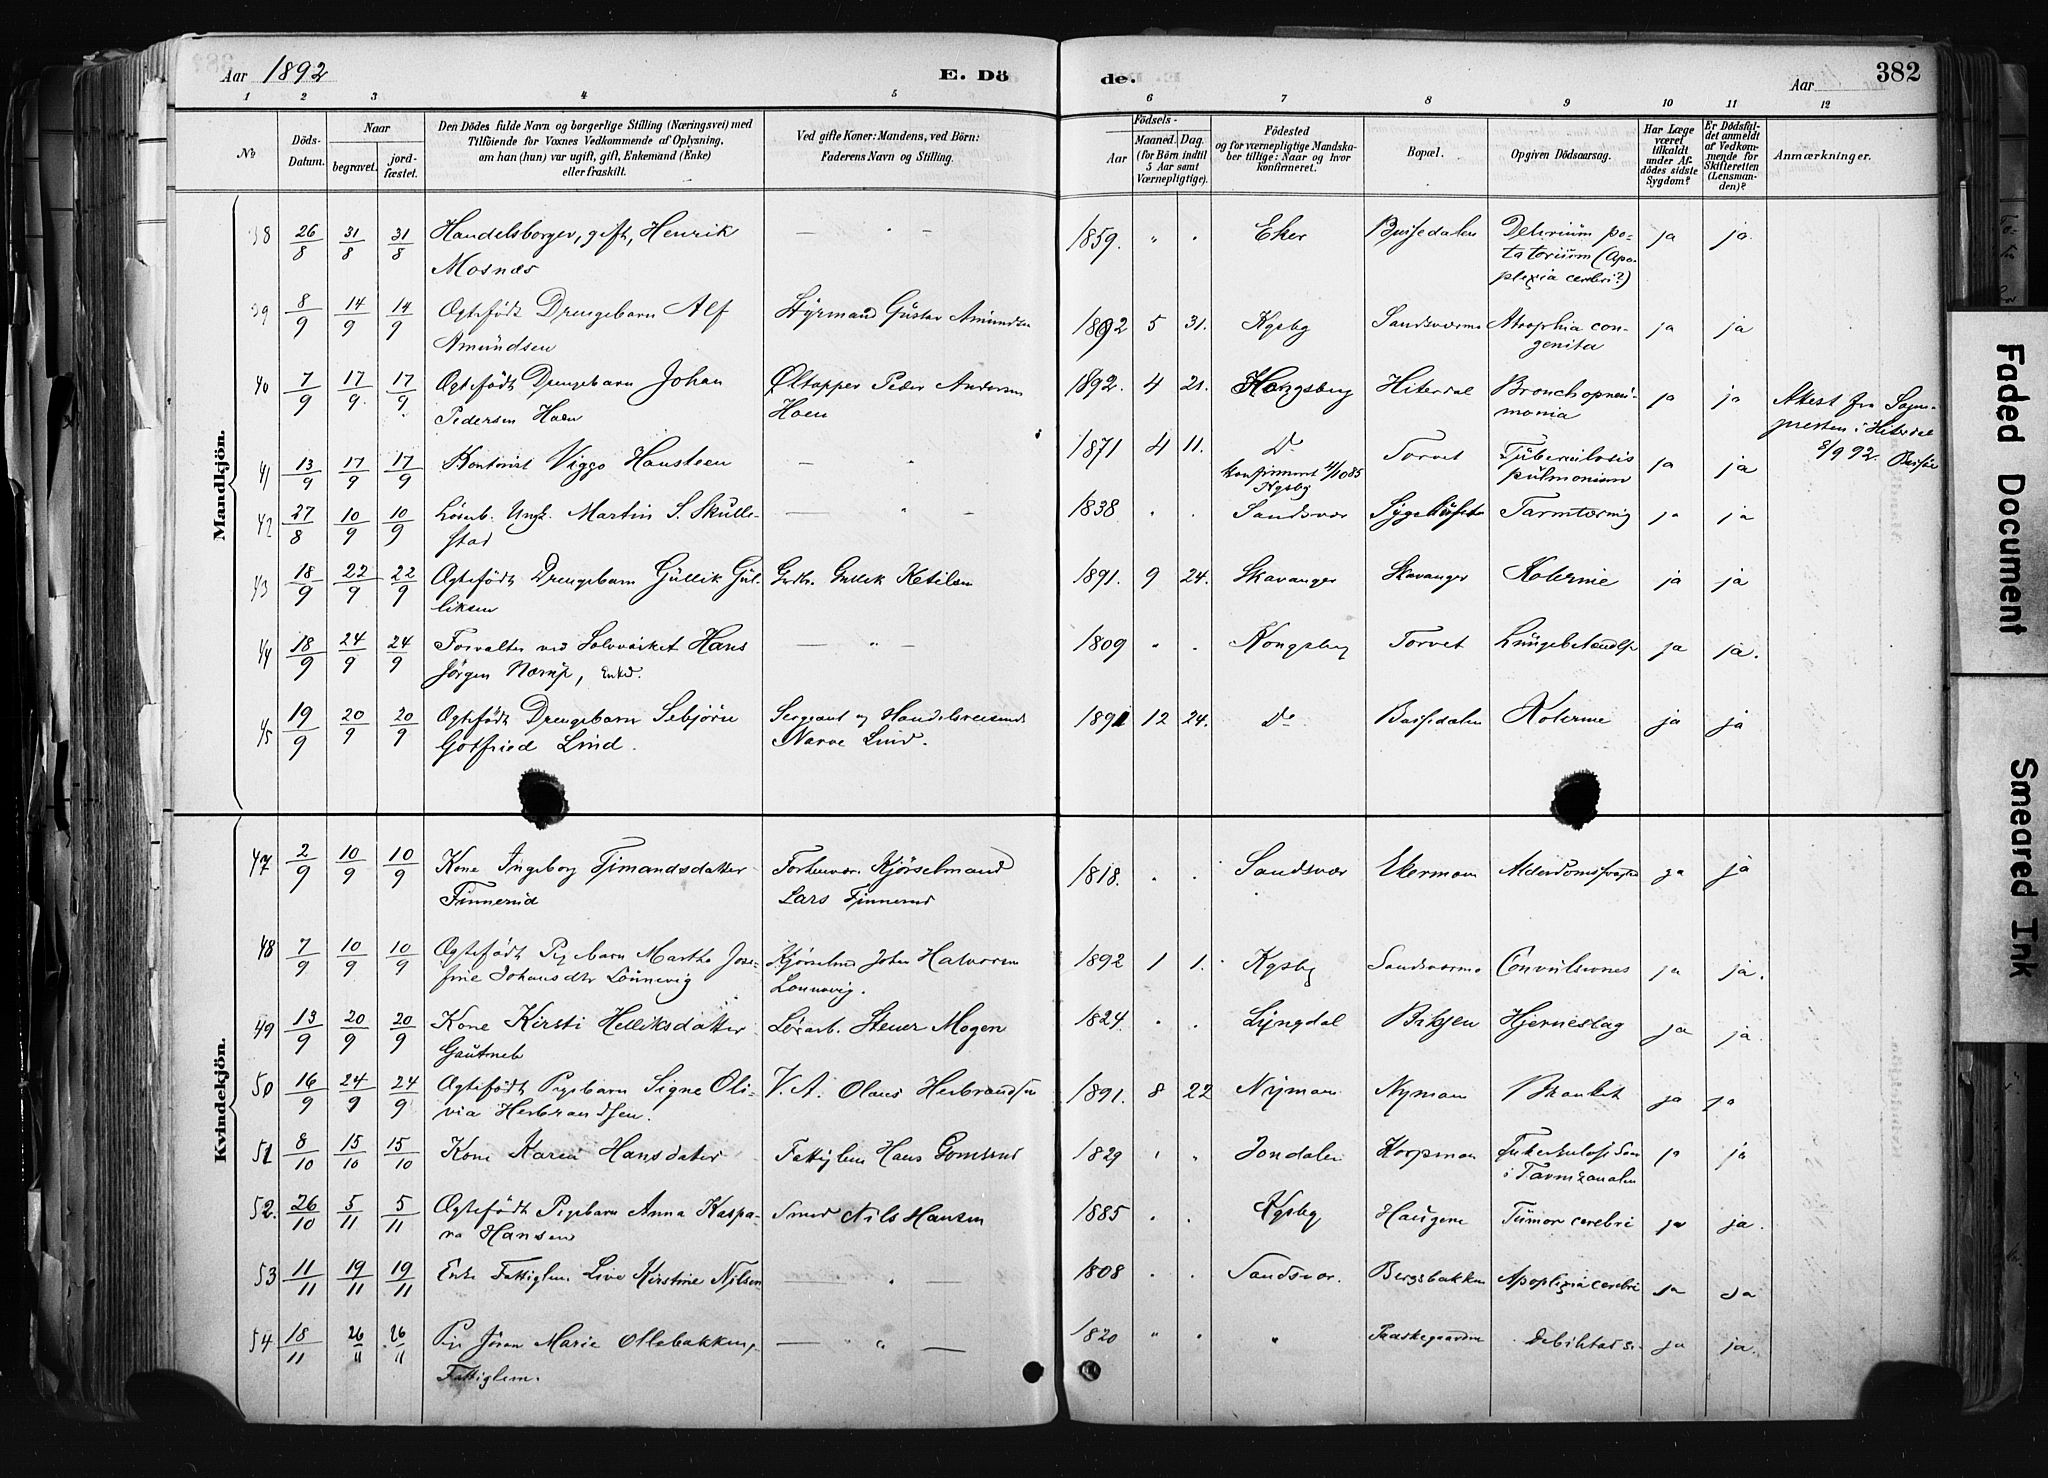 Aar 1892
E. Dö
de.
Aar
382
1 2 3 4 5 6 7 8 9 10 11 12
No
Döds-Datum.
Naar
begravet.
jord-fæstet.
Den Dödes fulde Navn og borgerlige Stilling (Næringsvei) med
Tilföiende for Voxnes Vedkommende af Oplysning,
om han (hun) var ugift, gift, Enkemand (Enke)
eller fraskilt.
Ved gifte Koner: Mandens, ved Börn:
Faderens Navn og Stilling.
Födsels-
Aar
Maaned. Dag.
(for Börn indtil
5 Aar samt
Værnepligtige).
Födested
og for værnepligtige Mandska-
ber tillige: Naar og hvor
konfirmeret.
Bopæl.
Opgiven Dödsaarsag.
Har Læge
været
tilkaldt
under Af-
dödes sidste
Sygdom?
Er Dödsful-
det anmeldt
af Vedkom-
mende for
Skifteretten
(Lensman-
den)?
Anmærkninger.
Mandkjön.
38 26/8 31/8 31/8 Handelsborger, gift, Henrik — " — 1859. " . Eker Bussedalen Delirium po- ja ja
Mosnæs tatorium (Apo-
plexia cerebri?)
39 8/9 14/9 14/9 Ogtefödt Drengebarn Alf Styrmand Gustav Amundsen 1892 5 31. Kgsbg Sandsværmo Atrophia con- ja ja
Amundsen genita
40 7/9 17/9 17/9 Ogtefödt Drengebarn Johan Øltapper Peder Andersen 1892. 4 21. Kongsberg Hiterdal Bronchopneu- ja ja Attest fra Sogne-
Pedersen Hoen Hoen monia presten i Hiterdal
41 13/9 17/9 17/9 Kontorist Viggo Hansteen — " 1871 4 11. Do Torvet Tuberculosis ja ja 8/9 92.
konfirmeret 4/10 85 pulmonum
Kgsbg
42 27/8 10/9 10/9 Löserb. Ungk. Martin S. Skulle- — " — 1838 . . Sandsvær Sygehuset Tarmtæring ja ja
stad
43 18/9 22/9 22/9 Ogtefödt Drengebarn Gullik Gul- Grdbr. Gullik Ketilsen 1891. 9 24. Skavanger Skavanger Kolerine ja ja
liksen
44 18/9 24/9 24/9 Forvalter ved Solvværket Hans — " — 1809 " . Kongsberg Torvet Lungebetændlse ja ja.
Jörgen Narup, Enkd.
45 19/9 20/9 20/9 Ogtefödt Drengebarn Sebjörn Sergeant og Handelsreisende 1891 12 24. Do Bussedalen Kolerine ja ja
Gotfried Lind. Narve Lind.
Kvindekjön.
47 2/9 10/9 10/9 Kone Ingeborg Tjimandsdatter Forhenvær. Kjörselmand 1818. . . Sandsvær Ekermoen Alderdomssvaghed ja ja
Finnerud Lars Finnerud
48 7/9 10/9 10/9 Ogtefödt Pigebarn Marthe Jose- Kjörselmd John Halvorsen 1892 1 1. Kgsbg Sandsværmo Convulsiones ja ja.
fine Johansdtr Lonnevig Lonnevig.
49 13/9 20/9 20/9 Kone Kirsti Helliksdatter Lörarb. Stener Mogen 1824. . . Lyngdal Bikjen Hjerneslag ja ja.
Gautneb
50 16/9 24/9 24/9 Ogtefödt Pigebarn Signe Oli- V. A. Olaus Herbrandsen 1891. 8 22 Nymoen Nymoen ja ja
via Herbrandsen.
51 8/10 15/10 15/10 Kone Karen Hansdatter Fattiglem Hans Gomsrud 1829 . . Jondalen Korpmoen Tuberkulose ja ja
i Tarmkanalen
52. 26/10 5/11 5/11 Ogtefödt Pigebarn Anna Kaspa- Smed Nils Hansen 1885 . . Kgsbg Haugene Tumor cerebri ja ja.
ra Hansen
53 11/11 19/11 19/11 Enke Fattiglem. Live Kirstine Nilsen — " — 1808 . . Sandsvær. Bergsbakken Apoplexia cerebri ja ja
54 18/11 26/11 26/11 Pige Jöran Marie Ollebakken, — " — 1820 " . " Præstegaarden Debilitas s. ja ja.
Fattiglem.
Faded Document
Smeared Ink